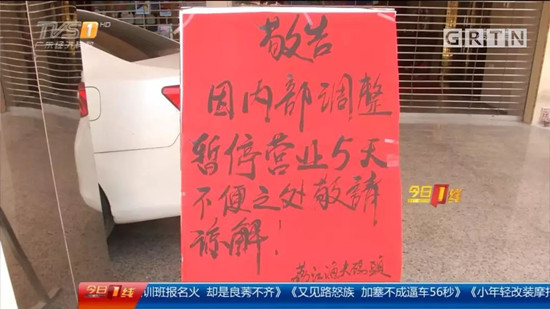 TVS1 HD
广东经济科教
GRTN
敬告
因内部调整
暂停营业5天
不便之处敬請
谅解!
今日1线
今日1线
训班报名火 却是良莠不齐》《又见路怒族 加塞不成逼车56秒》《小年轻改装摩托